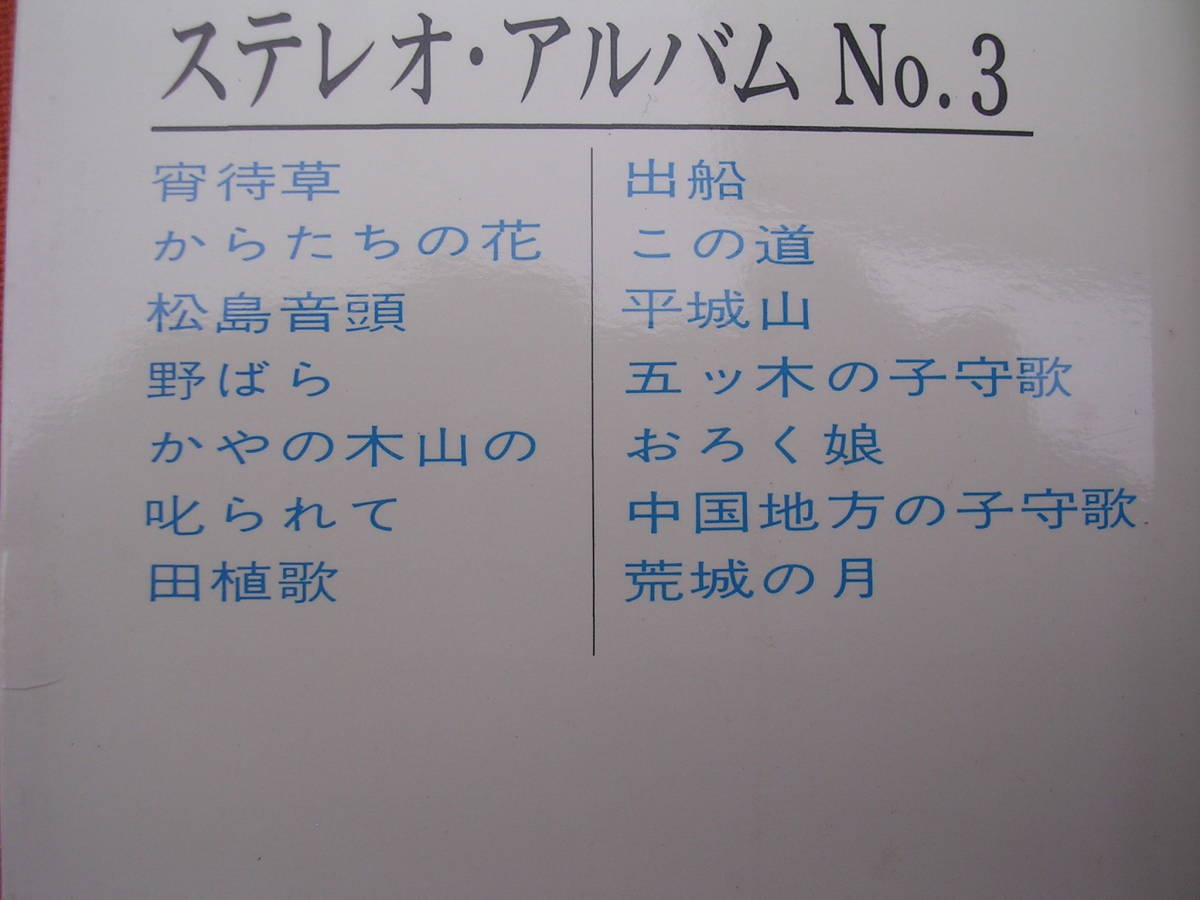 ステレオ・アルバム No.3
宵待草
からたちの花
松島音頭
野ばら
かやの木山の
叱られて
田植歌
出船
この道
平城山
五ッ木の子守歌
おろく娘
中国地方の子守歌
荒城の月